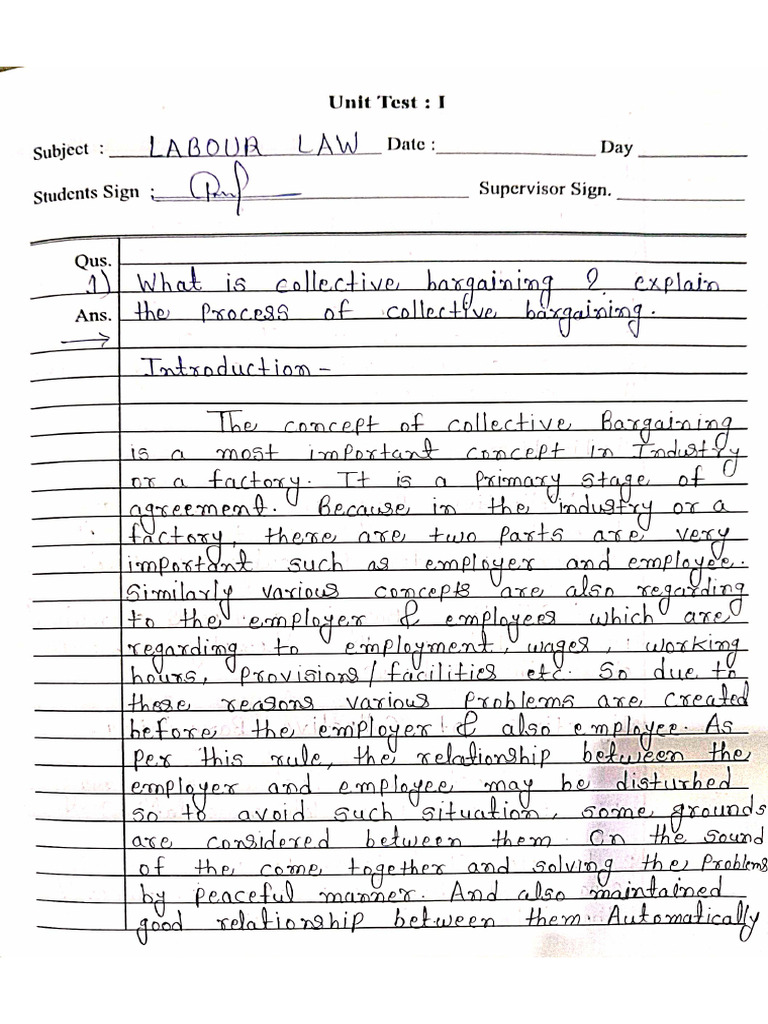 Unit Test : I
Subject : LABOUR LAW Date : Day
Students Sign : Supervisor Sign.
Qus.
1) What is collective bargaining ? explain
Ans. the process of collective bargaining.
→
Introduction -
The concept of collective Bargaining
is a most important concept in Industry
or a factory. It is a primary stage of
agreement. Because in the industry or a
factory, there are two parts are very
important such as employer and employee.
Similarly various concepts are also regarding
to the employer & employees which are
regarding to employment, wages, working
hours, provisions/facilities etc. So due to
these reasons various problems are created
before the employer & also employee. As
per this rule, the relationship between the
employer and employee may be disturbed
so to avoid such situation, some grounds
are considered between them on the sound
of the come together and solving the problems
by peaceful manner. And also maintained
good relationship between them. Automatically